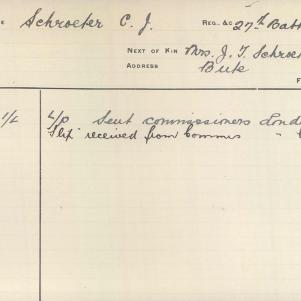 E Schroeter C. J. REG. &C 27th Batt
NEXT OF KIN Mrs. J. T. Schroet
ADDRESS Bute
F
1/L L/P Sent commissioners Lond
Slip received from Commis "